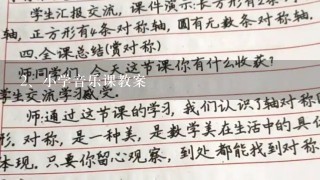 学生汇报交流,课件演示:长方形有2条
轴,正方形有4条对称轴,圆有无数条对称轴.
四.全课总结(赏对称)
师:同学们,今天这节课你有什么收获?
2. 小学音乐课教案
学生交流学习感受.
师:通过这节课的学习,我们认识了轴对称
形.对称,是一种美,是数学美在生活中的具
体现.只要你留心观察,到处都能找到对称